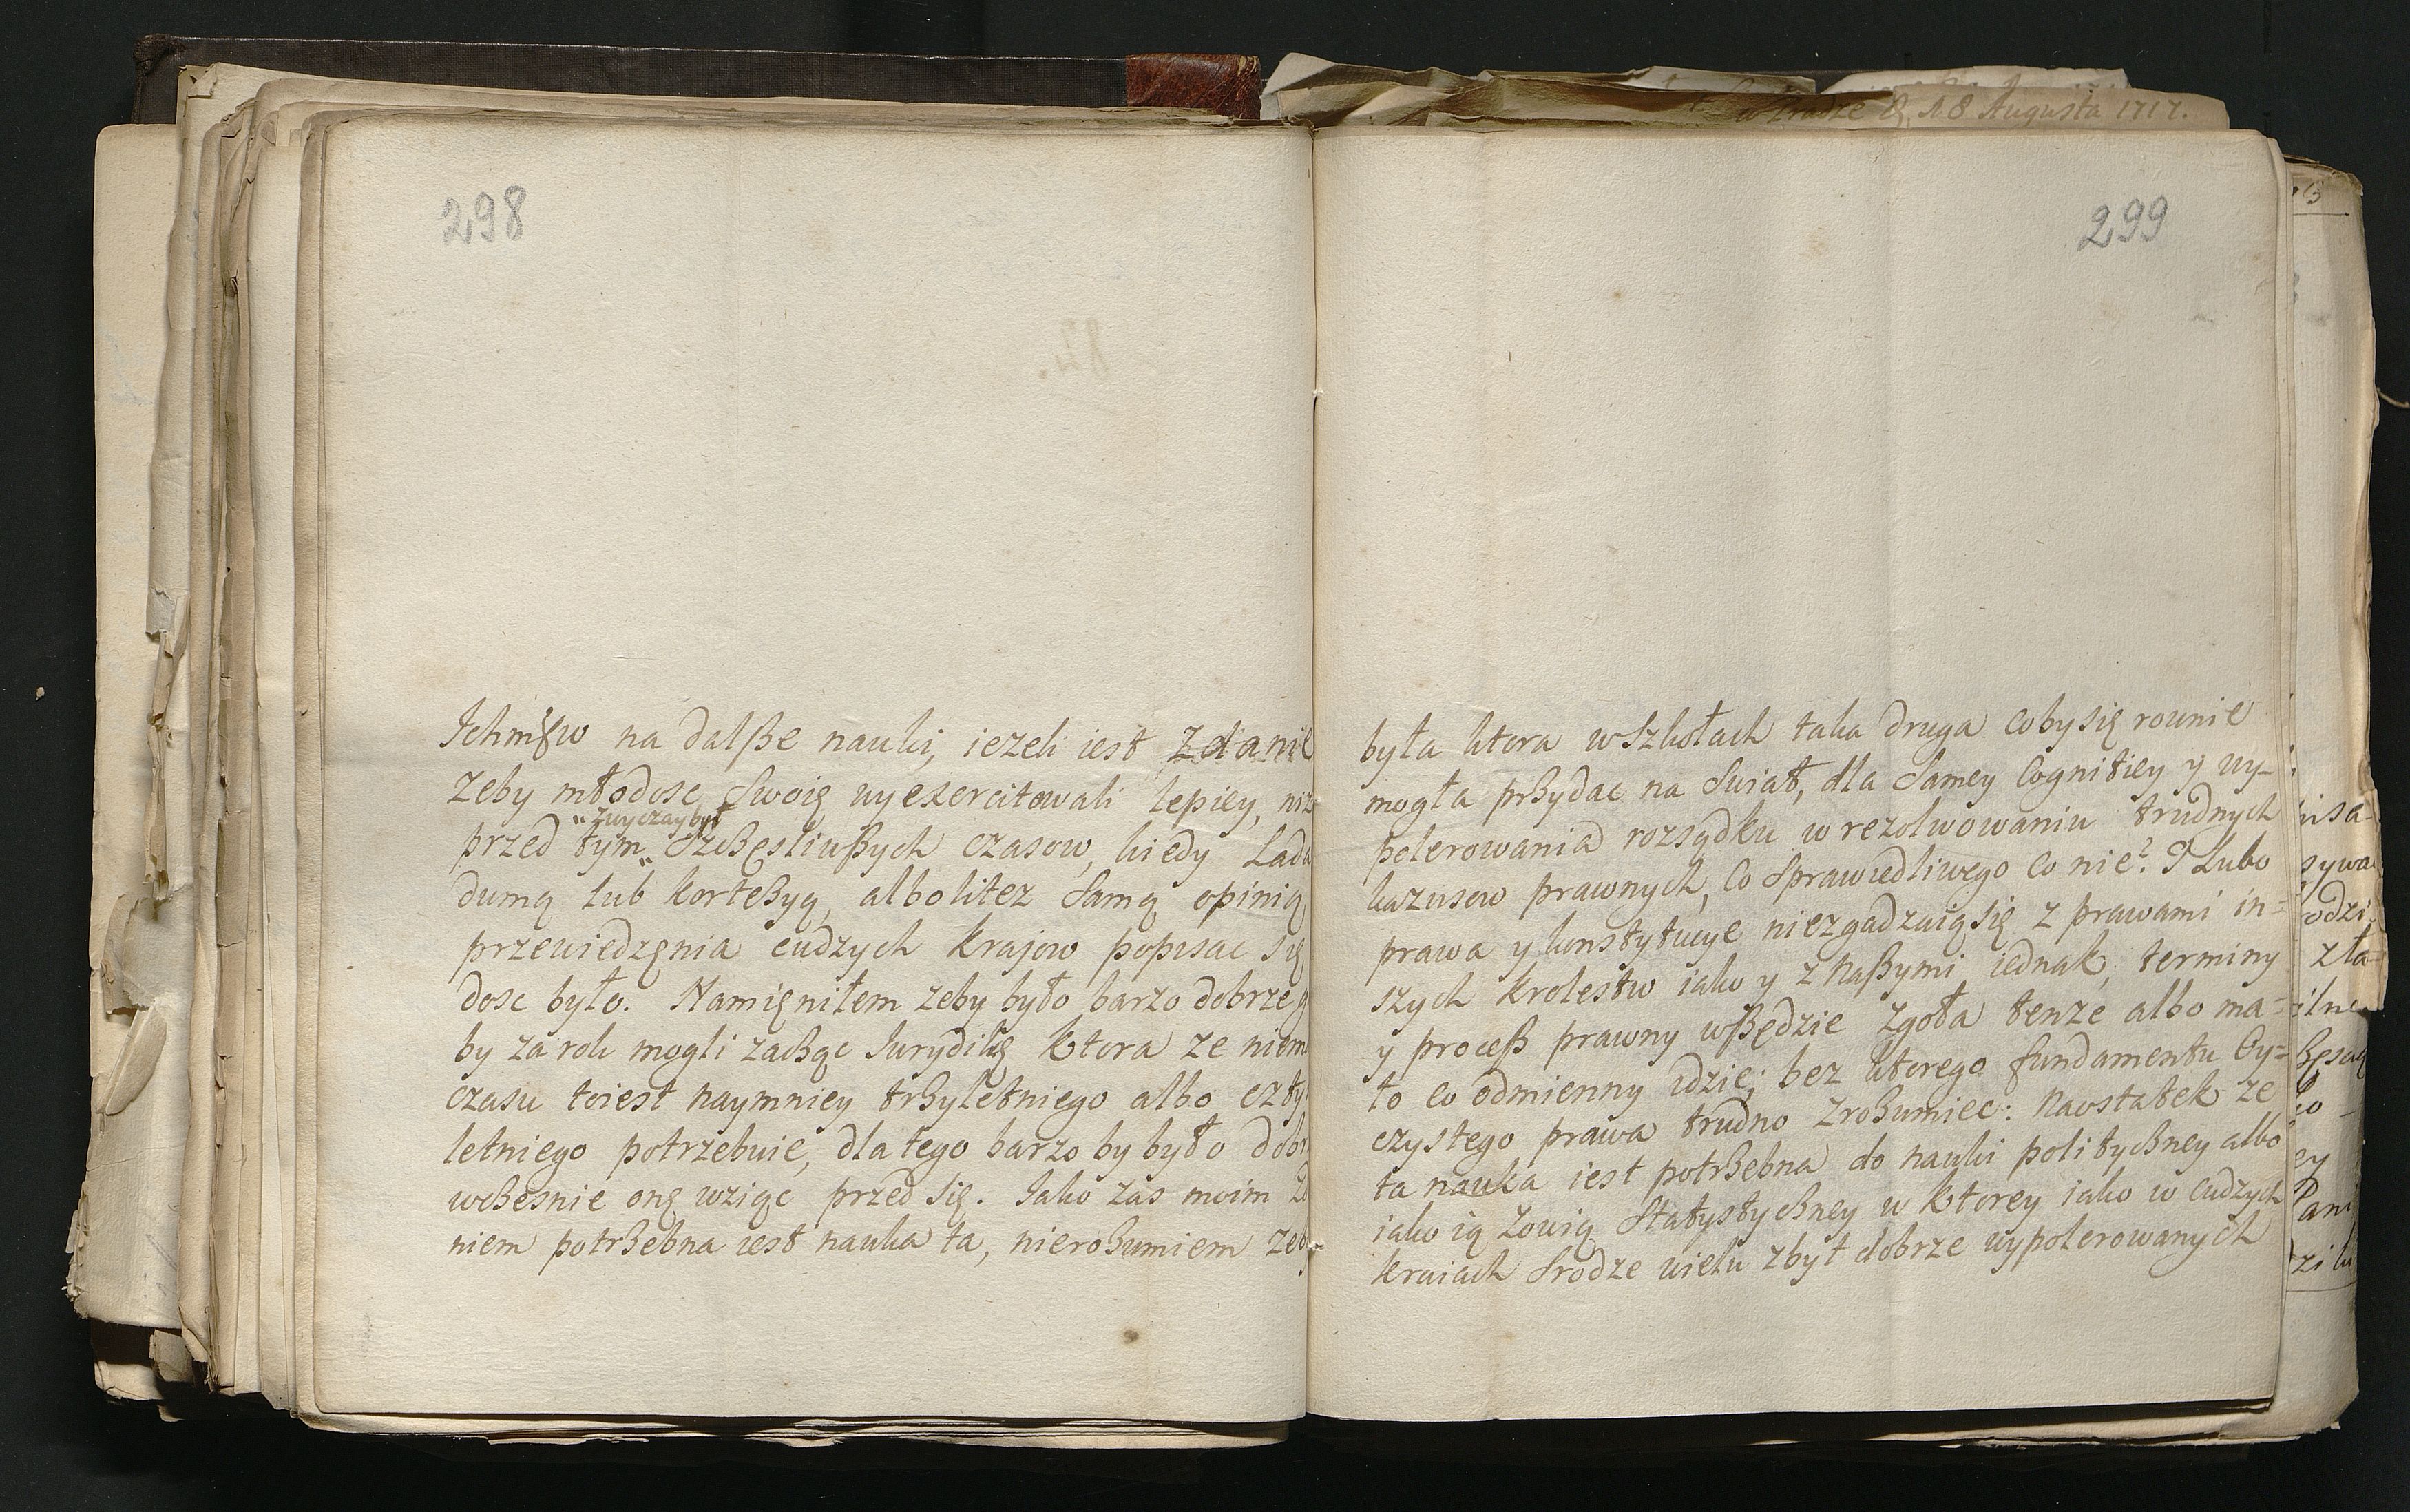 298
Ichmśćw na dalße nauki, iezeli iest zdanie
zeby młodosc Swoię wyexercitowali lepiey, niz
"zwyczay był
przed tym" Szcßęsliwßych czasow, kiedy Lada
dumą lub korteßyą, albolitez Samą opinią
przewiedzęnia cudzych krajow popisac się
dosc było. Namięniłem zeby było barzo dobrze g
by za rok mogli zacßąc Iurydikę ktora ze niem
czasu toiest naymniey trßyletniego albo czty
letniego potrzebuie, dla tego barzo by było dob
wcßesnie onę wziąc przed się. Iako zas moim z
niem potrßebna iest nauka ta, nieroßumiem zeby
w Pradze d. 18 Augusta 1717.
299
była ktora w Szkołach taka druga coby się rownie
mogła prßydac na Swiat, dla Samey Cognitiey y wy-
polerowania rozsądku w rezolwowaniu trudnych
kazusow prawnych, Co Sprawiedliwego Co nie? I Lubo
prawa y konstytucye niezgadzaią się z prawami in=
szych krolestw iako y z naßymi, iednak, terminy
y proceß prawny wßędzie zgoła tenze albo ma=
to co odmienny idzie; bez ktorego fundamentu Oy=
czystego prawa trudno zroßumiec: naostatek ze
ta nauka iest potrßebna do nauki politycßney albo
iako ią zowią Statystycßney w ktorey iako w cudzych
kraiach Srodze wielu zbyt dobrze wypolerowanych